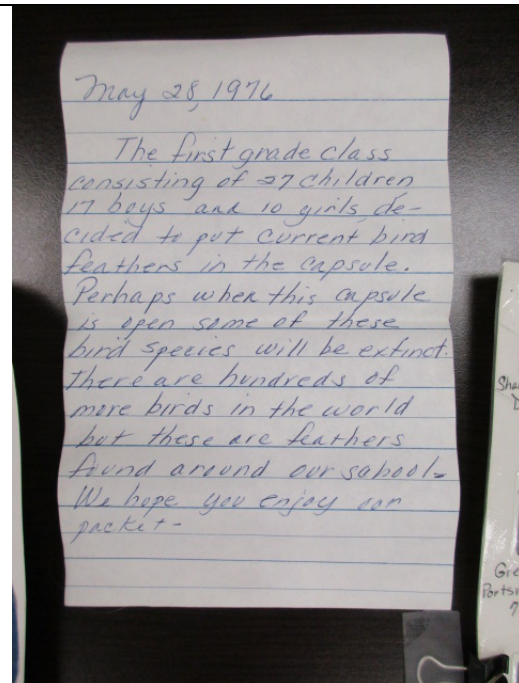 May 28, 1976
The first grade class
consisting of 27 children
17 boys and 10 girls, de-
cided to put current bird
feathers in the capsule.
Perhaps when this capsule
is open some of these
bird species will be extinct.
There are hundreds of
more birds in the world
but these are feathers
found around our school-
We hope you enjoy our
packet-
Sha
Gre
Ports